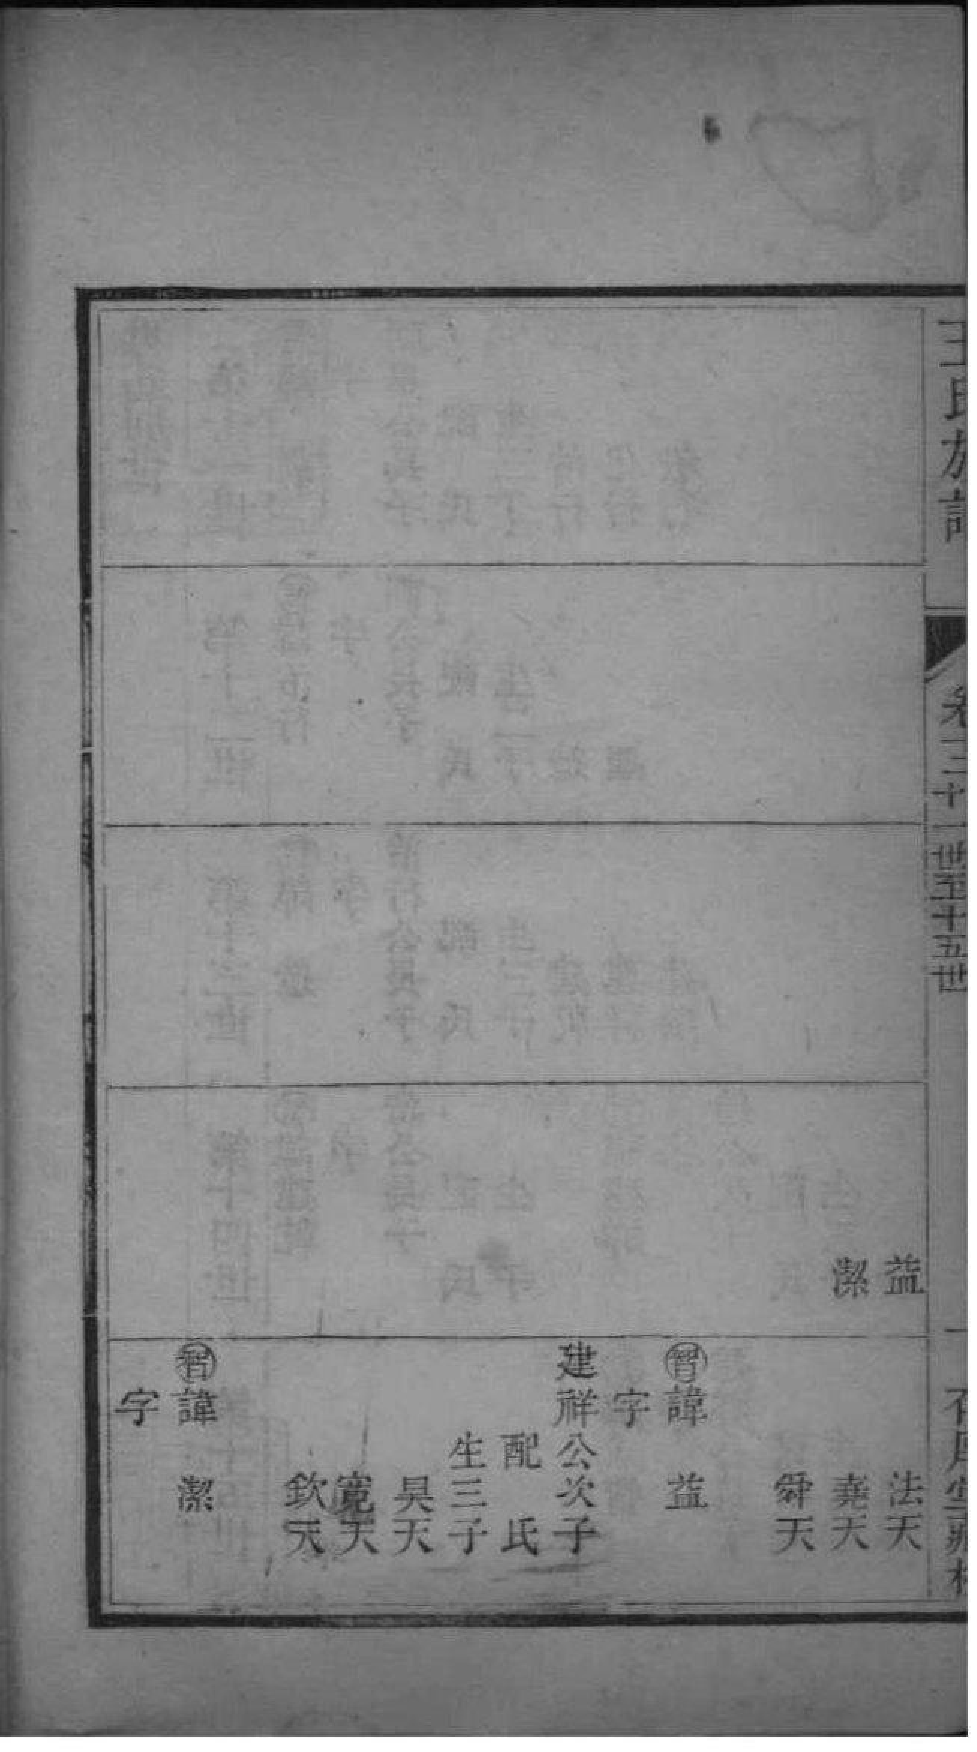 王氏族譜
卷三
十一世至十五世
一
益
潔
法天
堯天
舜天
智諱　益
字
建祥公次子
配　氏
生三子
昊天
寬天
欽天
智諱　潔
字